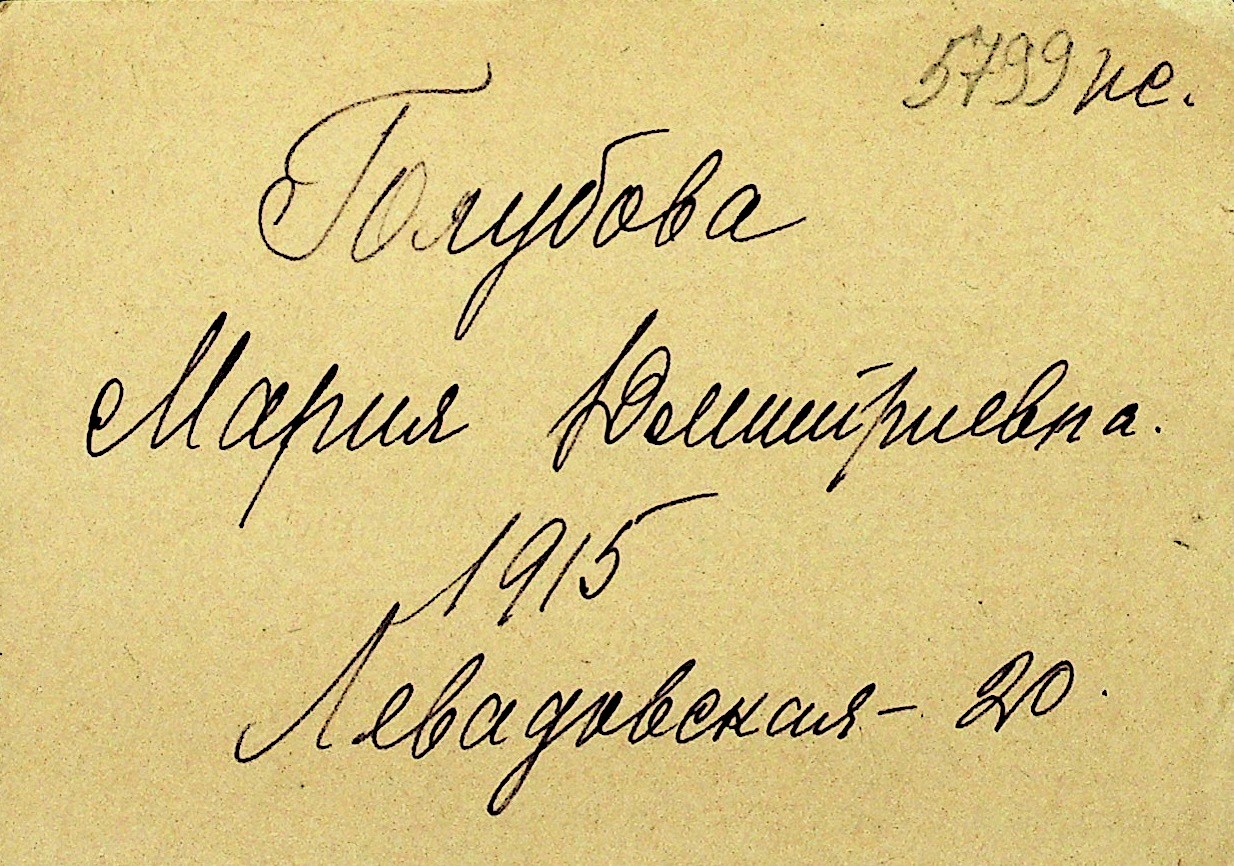 5799 пс.
Голубова
Мария Дмитриевна.
1915
Левадовская - 20.